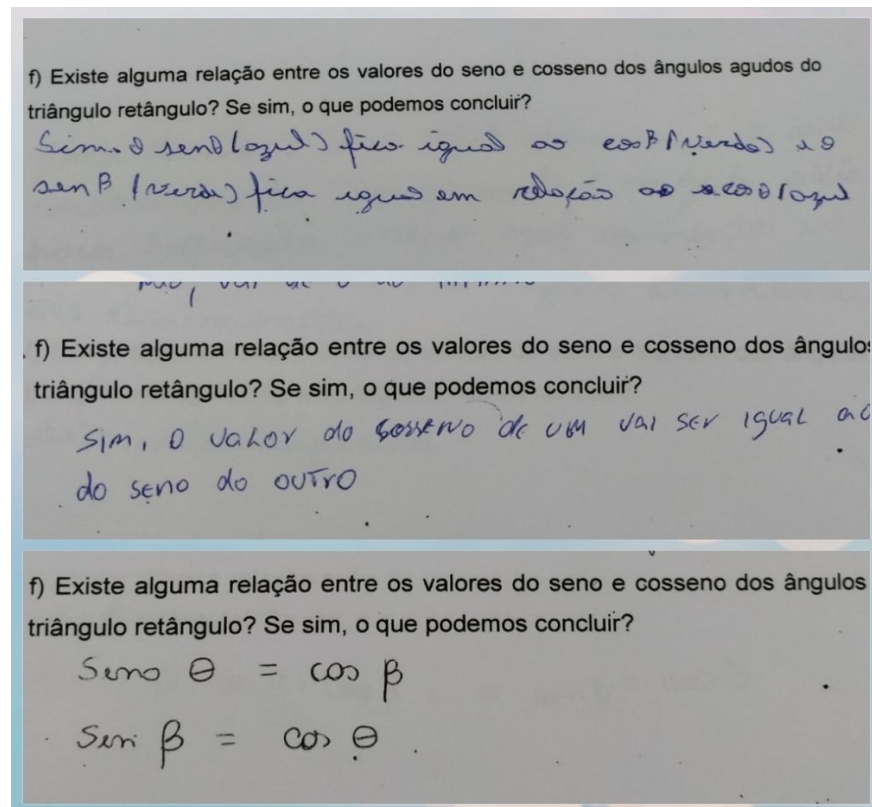 f) Existe alguma relação entre os valores do seno e cosseno dos ângulos agudos do
triângulo retângulo? Se sim, o que podemos concluir?
Sim. O senθ (azul) fica igual ao cosβ (verde) e o
senβ (verde) fica igual em relação ao cosθ (azul
f) Existe alguma relação entre os valores do seno e cosseno dos ângulos
triângulo retângulo? Se sim, o que podemos concluir?
SIM, O VALOR do cosseno de UM VAI SER IGUAL AO
do seno do OUTRO
f) Existe alguma relação entre os valores do seno e cosseno dos ângulos
triângulo retângulo? Se sim, o que podemos concluir?
Seno θ = cos β
Sen β = cos θ.